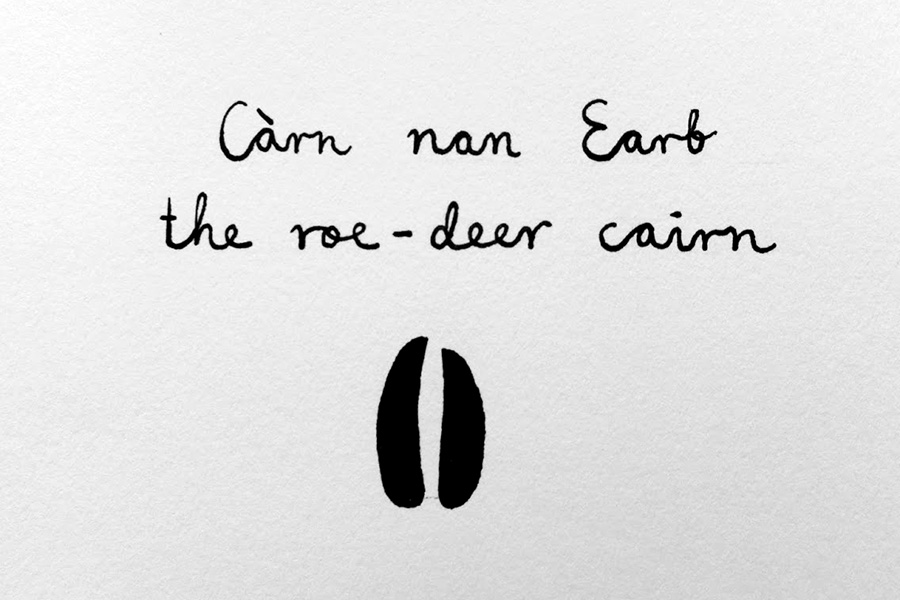 Càrn nan Earb
the roe-deer cairn